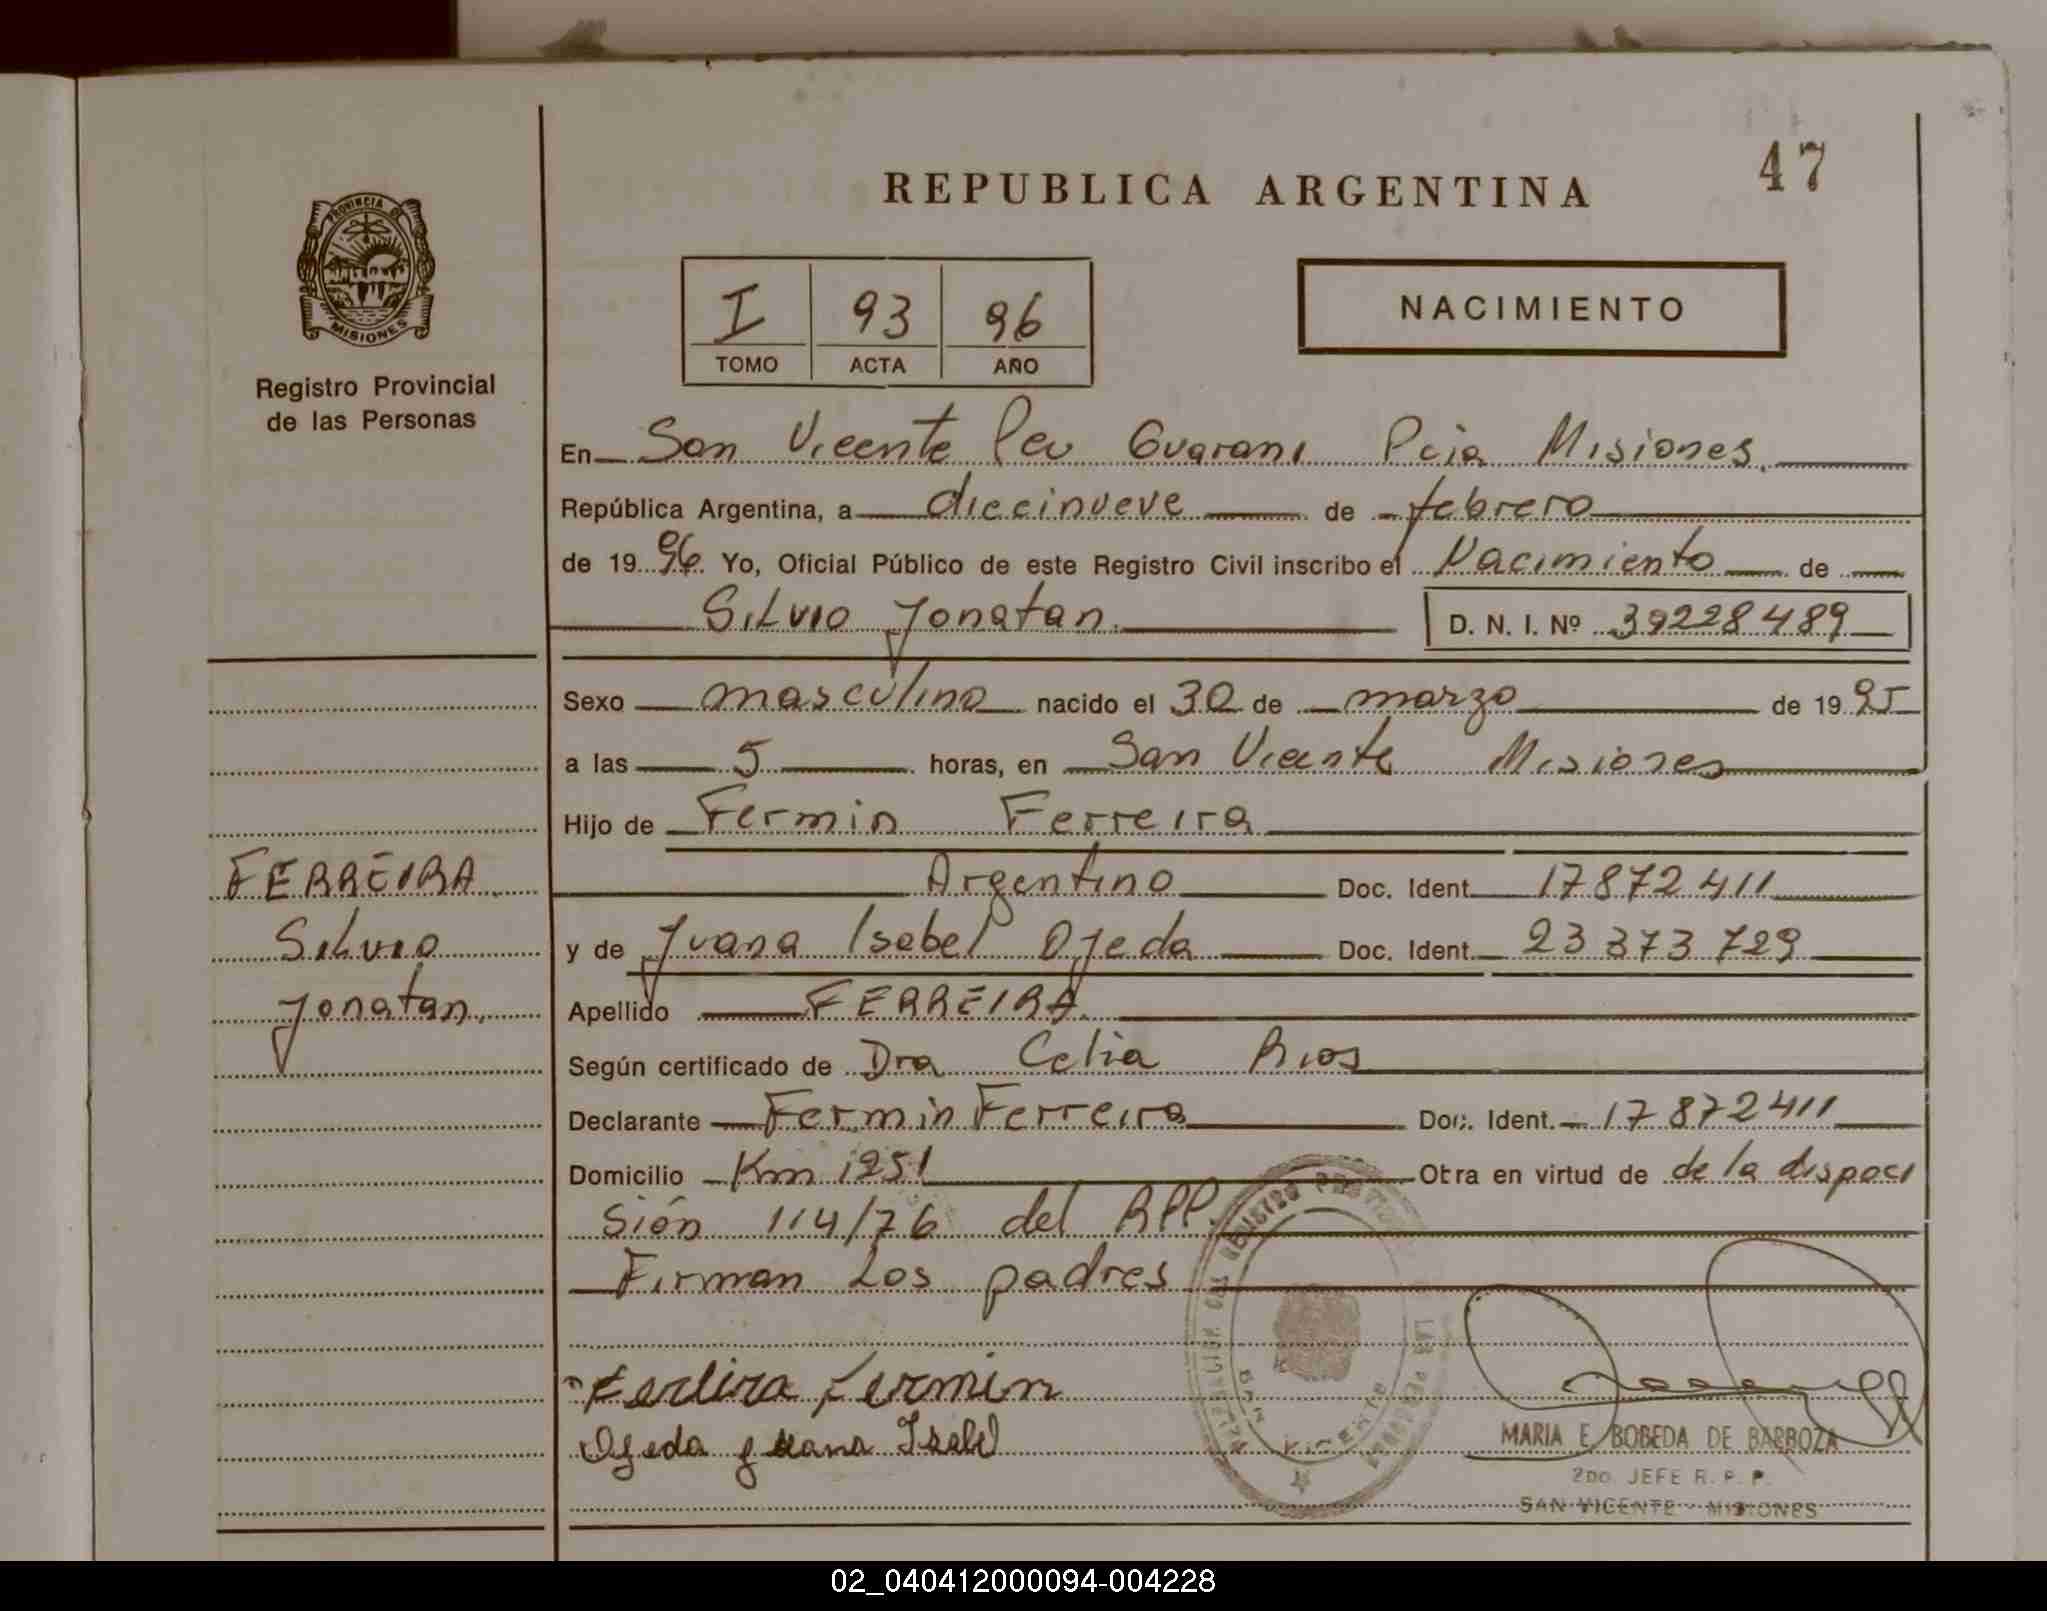 47
REPUBLICA ARGENTINA
PROVINCIA DE
MISIONES
Registro Provincial
de las Personas
I 93 96
TOMO ACTA AÑO
NACIMIENTO
En San Vicente Guarani Pcia Misiones
República Argentina, a diecinueve de febrero
de 1996. Yo, Oficial Público de este Registro Civil inscribo el Nacimiento de
Silvio Jonatan D. N. I. Nº 39228489
Sexo masculino nacido el 30 de marzo de 1995
a las 5 horas, en San Vicente Misiones
Hijo de Fermin Ferreira
Argentino Doc. Ident. 17872411
FERREIRA
Silvio
Jonatan
y de Juana Isabel Ojeda Doc. Ident. 23373729
Apellido FERREIRA
Según certificado de Dra Celia Rios
Declarante Fermin Ferreira Doc. Ident. 17872411
Domicilio Km 1251 Otra en virtud de de la disposi
sión 114/76 del RPP.
Firman Los padres
Ferreira Fermin
Ojeda Juana Isabel
MARIA E. BOBEDA DE BARBOZA
2DO. JEFE R. P. P.
SAN VICENTE - MISIONES
02_040412000094-004228